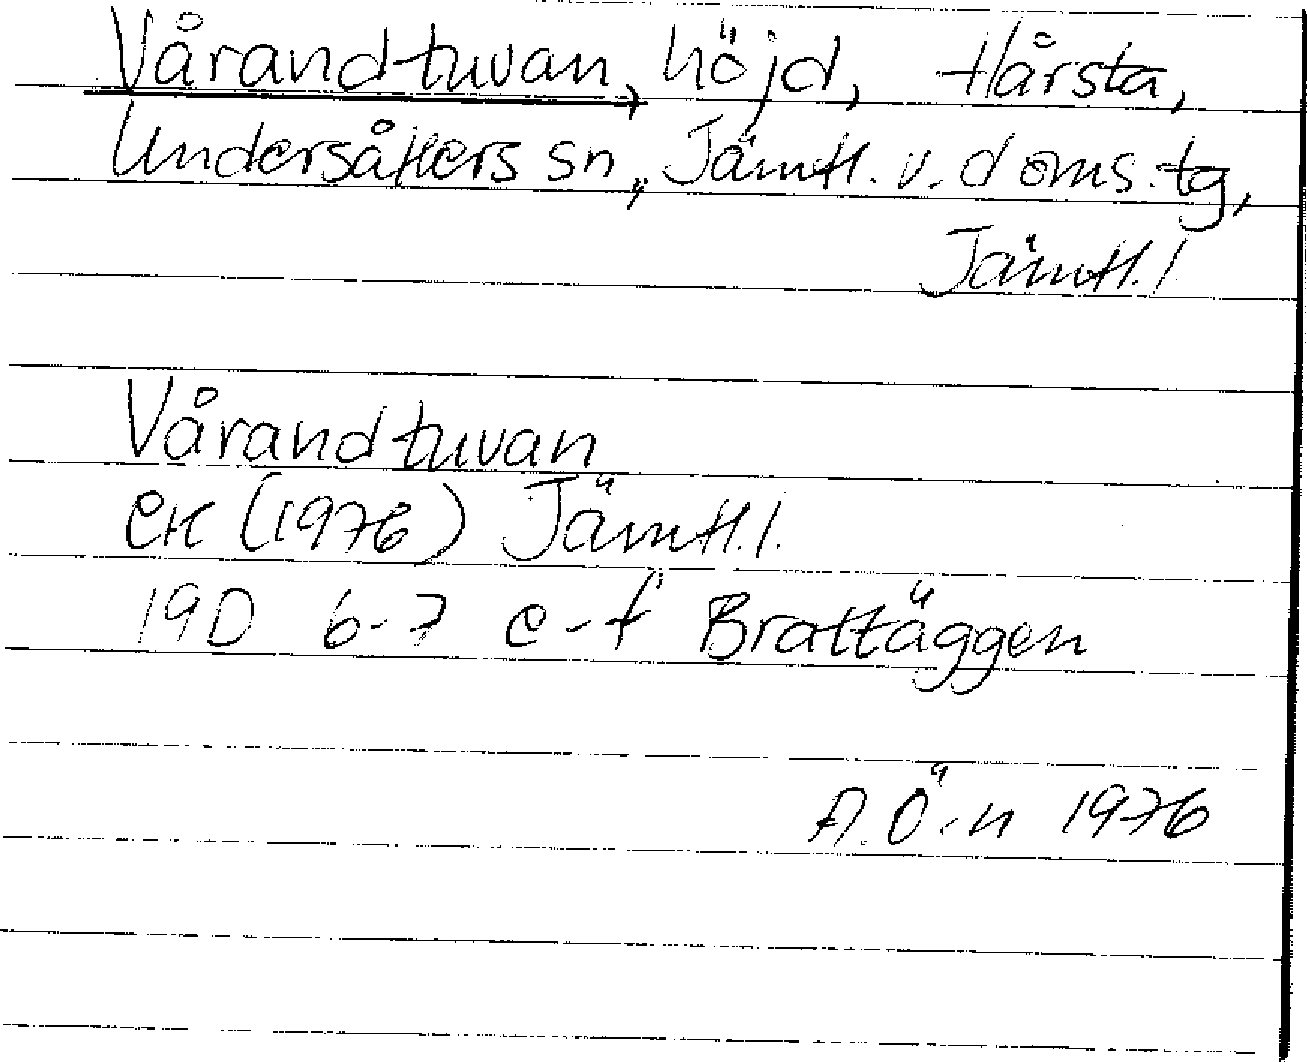 Vårandtuvan, höjd, Hårsta,
Undersåkers sn, Jämtl. v. doms.tg,
Jämtl. l
Vårandtuvan
ek (1976) Jämtl. l.
19D 6-7 e-f Brattäggen
A. Ö-n 1976